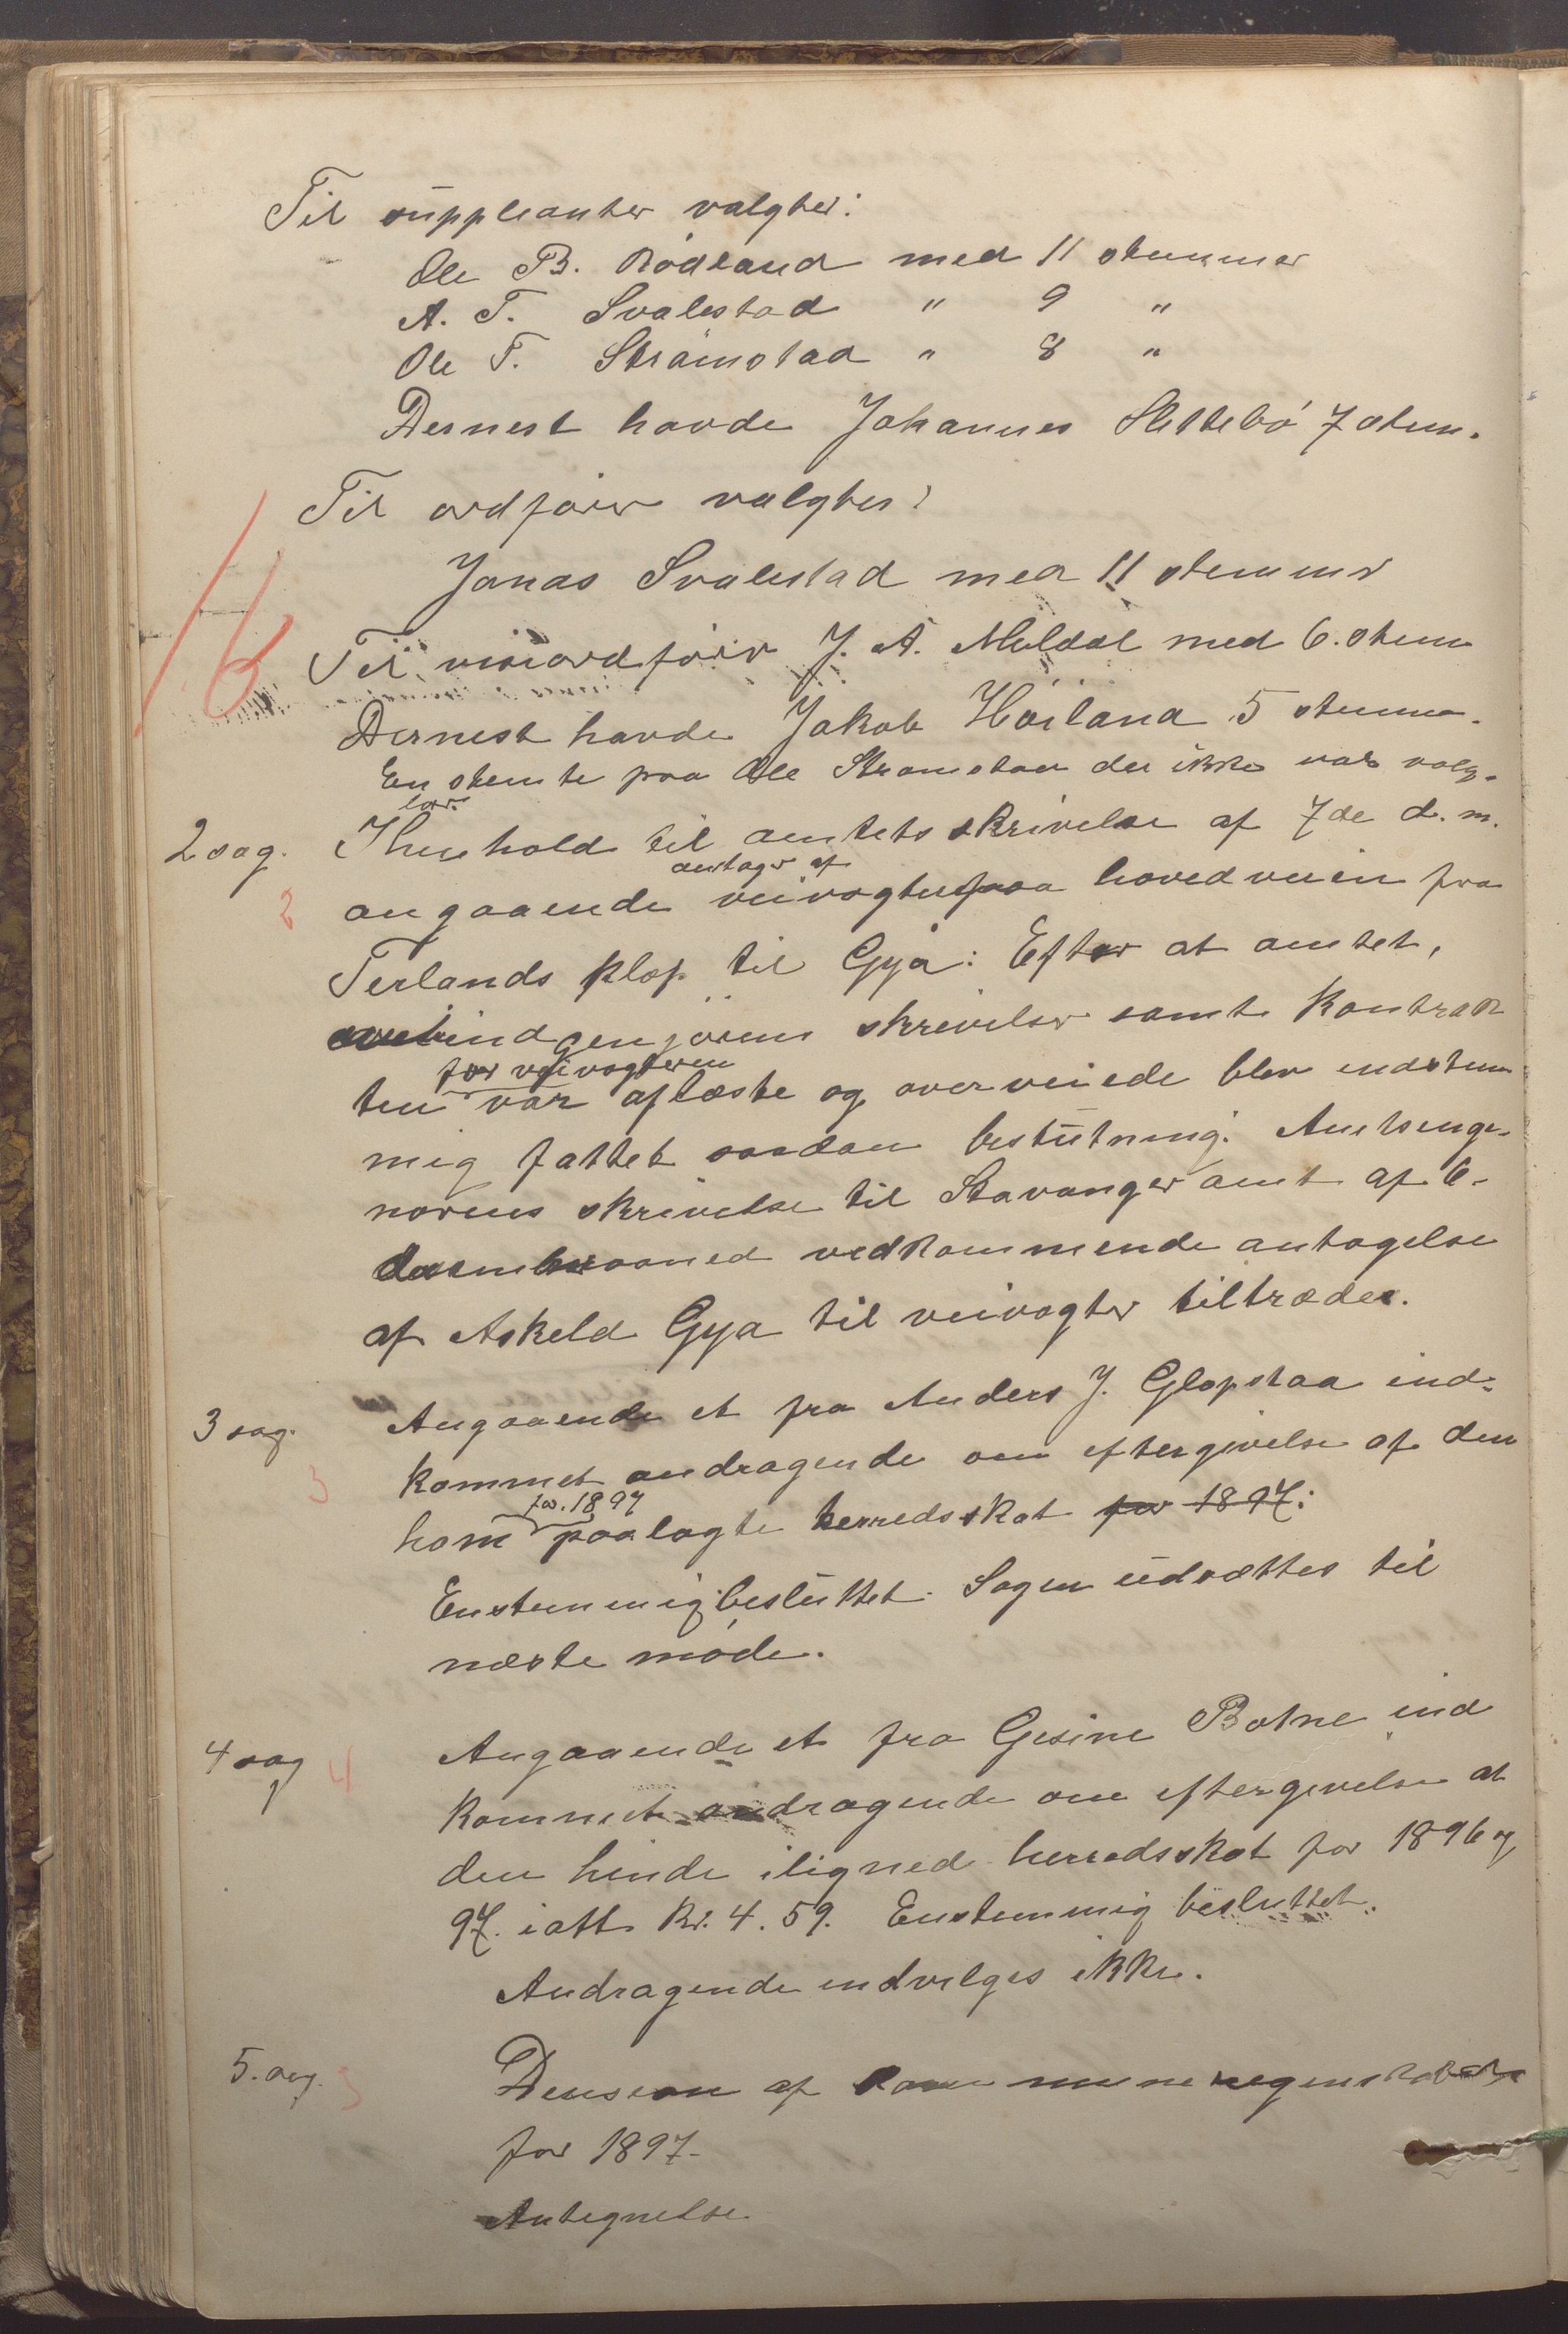 Til suppleanter valgtes:
Ole B. Rødland med 11 stemmer
A. T. Svalestad " 9 "
Ole T. Strømstad " 8 "
Dernest havde Johannes Slettebø 7 stem.
Til ordfører valgtes:
Jonas Svalestad med 11 stemmer
Til viseordfører J. A. Meldal med 6. stem
16
Dernest havde Jakob Høiland 5 stemme.
En stemte paa Ole Strømstad der ikke var valg-
bar.
2 sag. I henhold til amtets skrivelse af 7de d. m.
2
antagr af
angaaende veivogter paa hovedveien fra
Terlands klop til Gya: Efter at amtet,
ingeniørens skrivelser samt kontrak
for veivogteren
ten var aflæste og overveiede blev endstem
mig fattet saadan beslutning: Amtsinge-
niørens skrivelse til Stavanger amt af 6-
vedkommende antagelse
af Askeld Gya til veivogter tiltrædes.
3 sag. Angaaende et fra Anders J. Glopstaa ind-
3
kommet andragende om eftergivelse af den
for. 1897
ham paalagte herredsskat for 1897:
Enstemmig besluttet. Sagen udsættes til
næste møde.
4 sag 4 Angaaende et fra Gesine Botne ind
kommet andragende om eftergivelse at
den hende iligned herredsskat for 1896 og
97. ialt kr. 4.59. Enstemmig besluttet.
Andragende indvilges ikke.
5. sag. 5 af
for 1897-
Antegnelse